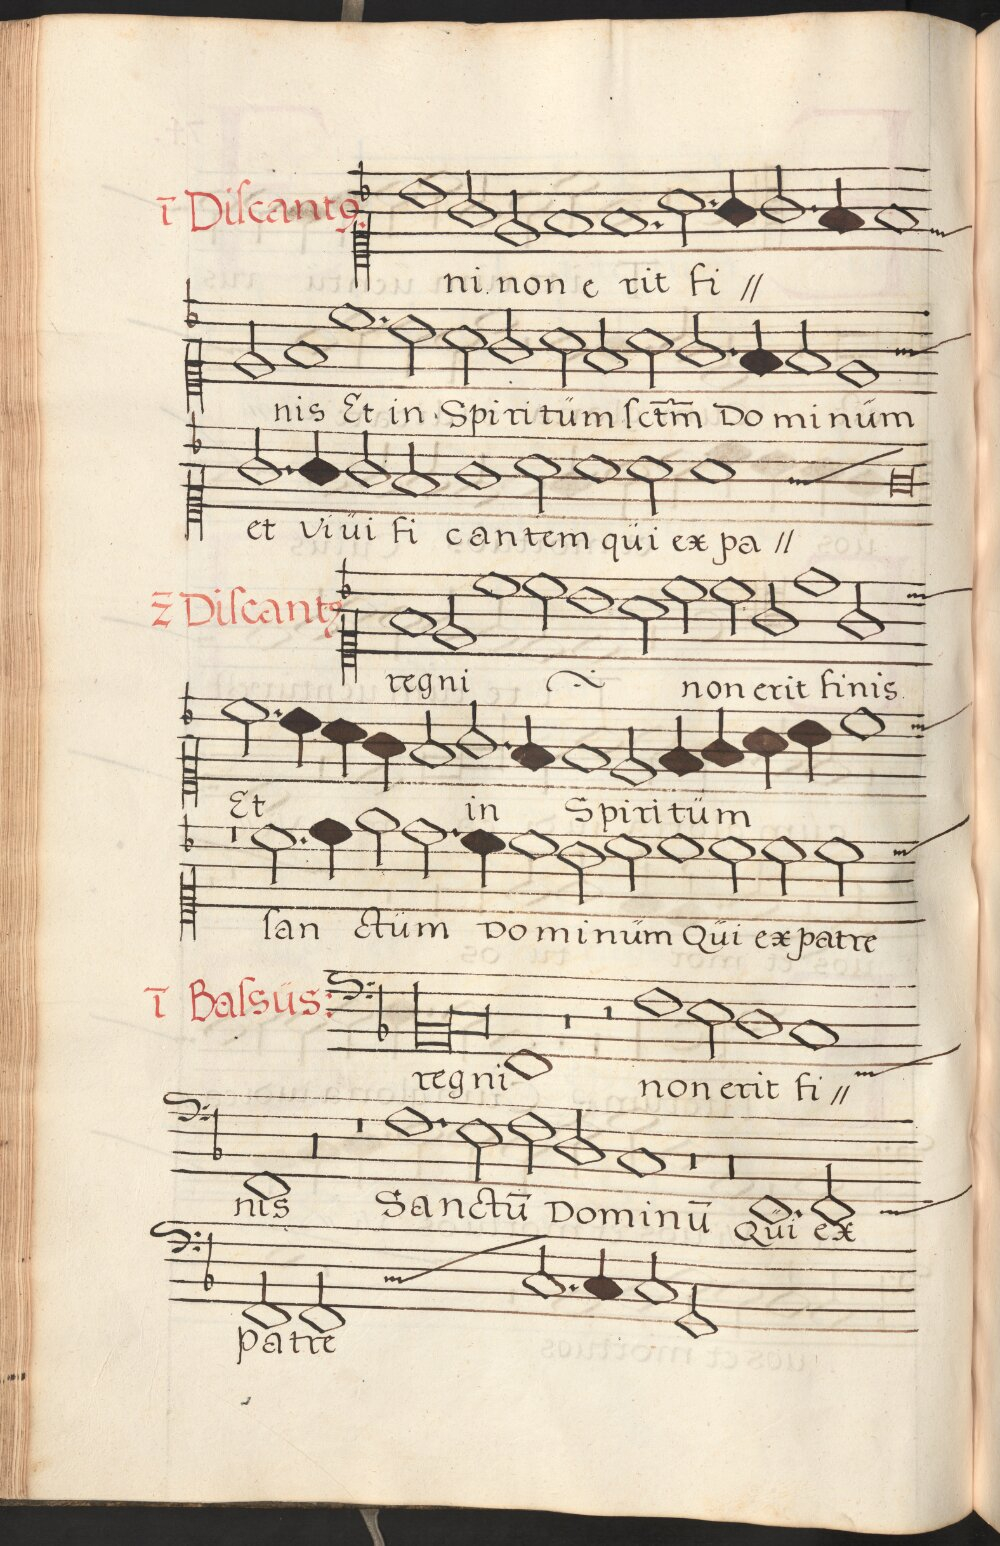 1 Discantꝰ.
ni non e rit fi //
nis Et in Spiritüm sctm̃ Do minüm
et viüi fi cantem qüi ex pa //
2 Discantꝰ
regni non erit finis
Et in Spiritüm
san ctüm Dominüm Qüi ex patre
1 Bassüs:
regni non erit fi //
nis Sanctū Dominū Qüi ex
patre